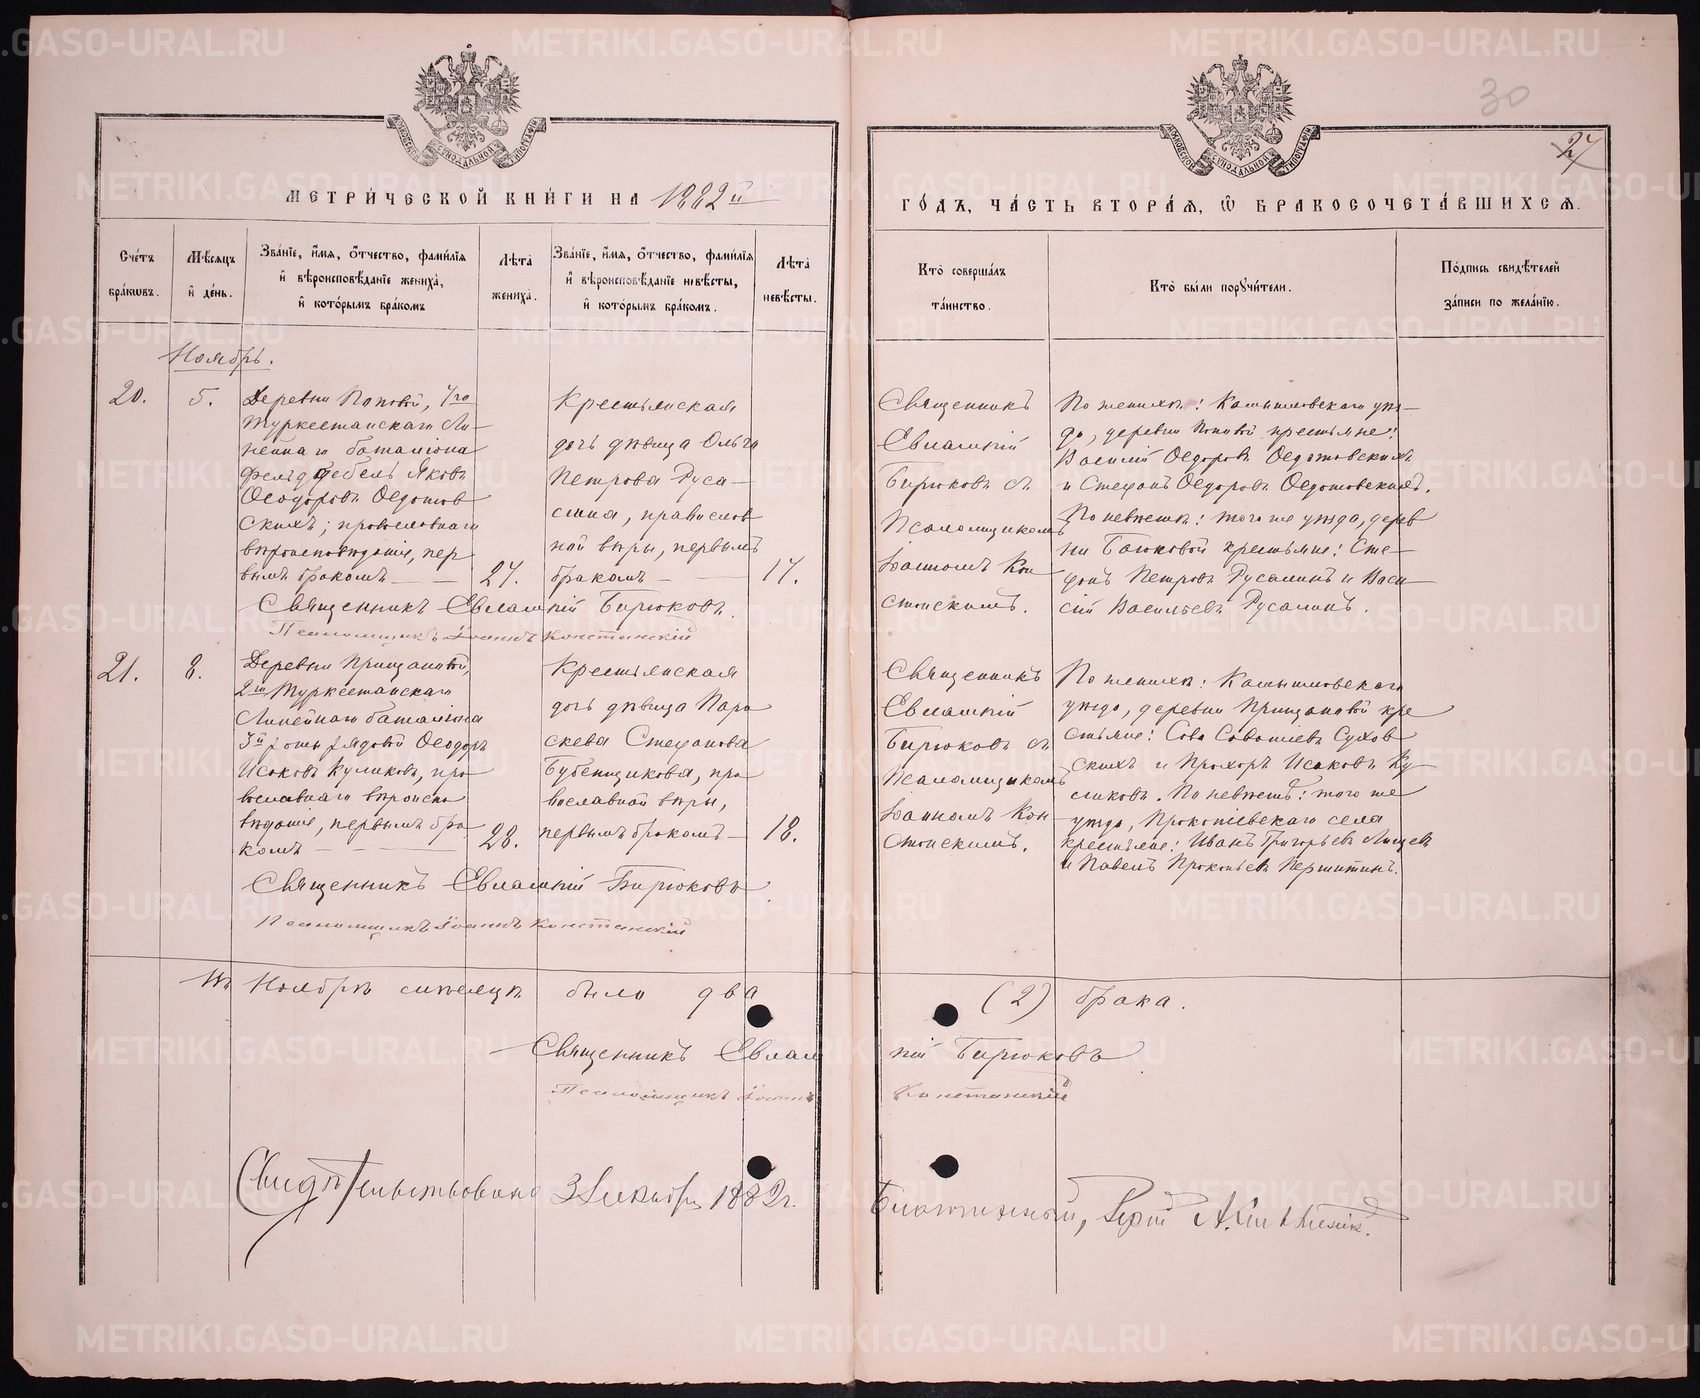 30
27
МЕТРИ́ЧЕСКОЙ КНИ́ГИ НА 1882й
ГО́ДЪ, ЧА́СТЬ ВТОРА́Я, Ѡ БРАКОСОЧЕТА́ВШИХСѦ.
Сче́тъ бра́кѡвъ.
Мѣ́сяцъ и҆ де́нь.
Зва́нїе, и҆́мя, ѻ҆́тчество, фами́лїя
и҆ вѣроисповѣ́данїе жениха̀,
и҆ кото́рымъ бра́комъ
Лѣта̀ жениха̀.
Зва́нїе, и҆́мя, ѻ҆́тчество, фами́лїя
и҆ вѣроисповѣ́данїе невѣ́сты,
и҆ кото́рымъ бра́комъ.
Лѣта̀ невѣ́сты.
Кто̀ соверша́лъ
та́инство.
Кто̀ бы́ли порꙋчи́тели.
По́дпись свидѣ́телей
за́писи по жела́нїю.
Ноябрь.
20.
5.
Деревни Поповой, 7го
Туркестанскаго Ли-
нейнаго баталіона
фельдфебель Яковъ
Ѳеодоровъ Ѳедотов
скихъ; православнаго
вѣроисповѣданія, пер
вымъ бракомъ — —
27.
Крестьянская
дочь дѣвица Ольга
Петрова Руса-
кина, православ
ной вѣры, первымъ
бракомъ —
17.
Священникъ
Евлампій
Бирюковъ съ
Псаломщикомъ
Іоанномъ Кон
станскимъ.
По женихѣ: Камышловскаго уѣз-
да, деревни Поповой крестьяне:
Василій Ѳедоровъ Ѳедотовскихъ
и Стефанъ Ѳедоровъ Ѳедотовскихъ.
По невѣстѣ: того же уѣзда, дерев
ни крестьяне: Сте-
фанъ Петровъ и Васи-
лій Васильевъ
Священникъ Евлампій Бирюковъ.
Псаломщикъ Іоаннъ Констанскій
21.
8.
Деревни Прищановой,
2го Туркестанскаго
Линейнаго баталіона
3й роты рядовой Ѳеодоръ
Исаковъ Куликовъ, пра
вославнаго вѣроиспо
вѣданія, первымъ бра
комъ —
28.
Крестьянская
дочь дѣвица Пара
скева Стефанова
Бубенщикова, пра
вославной вѣры,
первымъ бракомъ —
18.
Священникъ
Евлампій
Бирюковъ съ
Псаломщикомъ
Іоанномъ Кон
станскимъ.
По женихѣ: Камышловскаго
уѣзда, деревни Прищановой кре
стьяне: Сава Саватіевъ Сухов
скихъ и Прохоръ Исаковъ Ку
ликовъ. По невѣстѣ: того же
уѣзда, Прокопіевскаго села
крестьяне: Иванъ Григорьевъ
и Павелъ Прокопьевъ
Священникъ Евлампій Бирюковъ
Псаломщикъ Іоаннъ Констанскій
Въ Ноябрѣ мѣсяцѣ было два (2) брака.
Священникъ Евлампій Бирюковъ
Псаломщикъ Іоаннъ Констанскій
Свидѣтельствовано 3 Декабря 1882 г. Благочинный, Іерей
METRIKI.GASO-URAL.RU